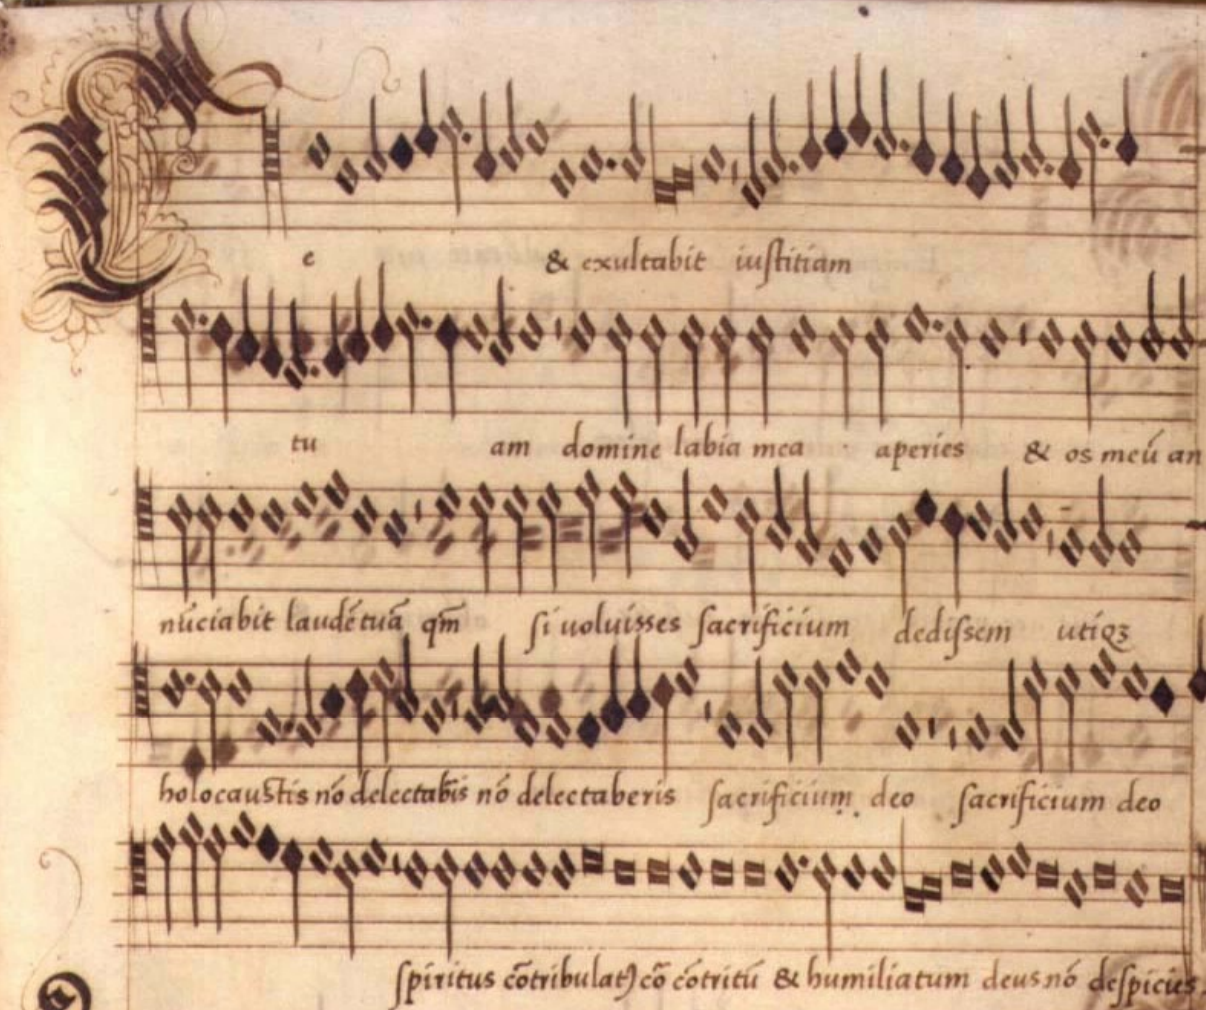 Le & exultabit iustitiam
tu am domine labia mea aperies & os meū an
nūciabit laudē tuā qm̄ si uoluisses sacrificium dedissem utiqꝫ
holocaustis nō delectab̄is nō delectaberis sacrificium deo sacrificium deo
spiritus cōtribulatꝰ cō cōtritū & humiliatum deus nō despicies.